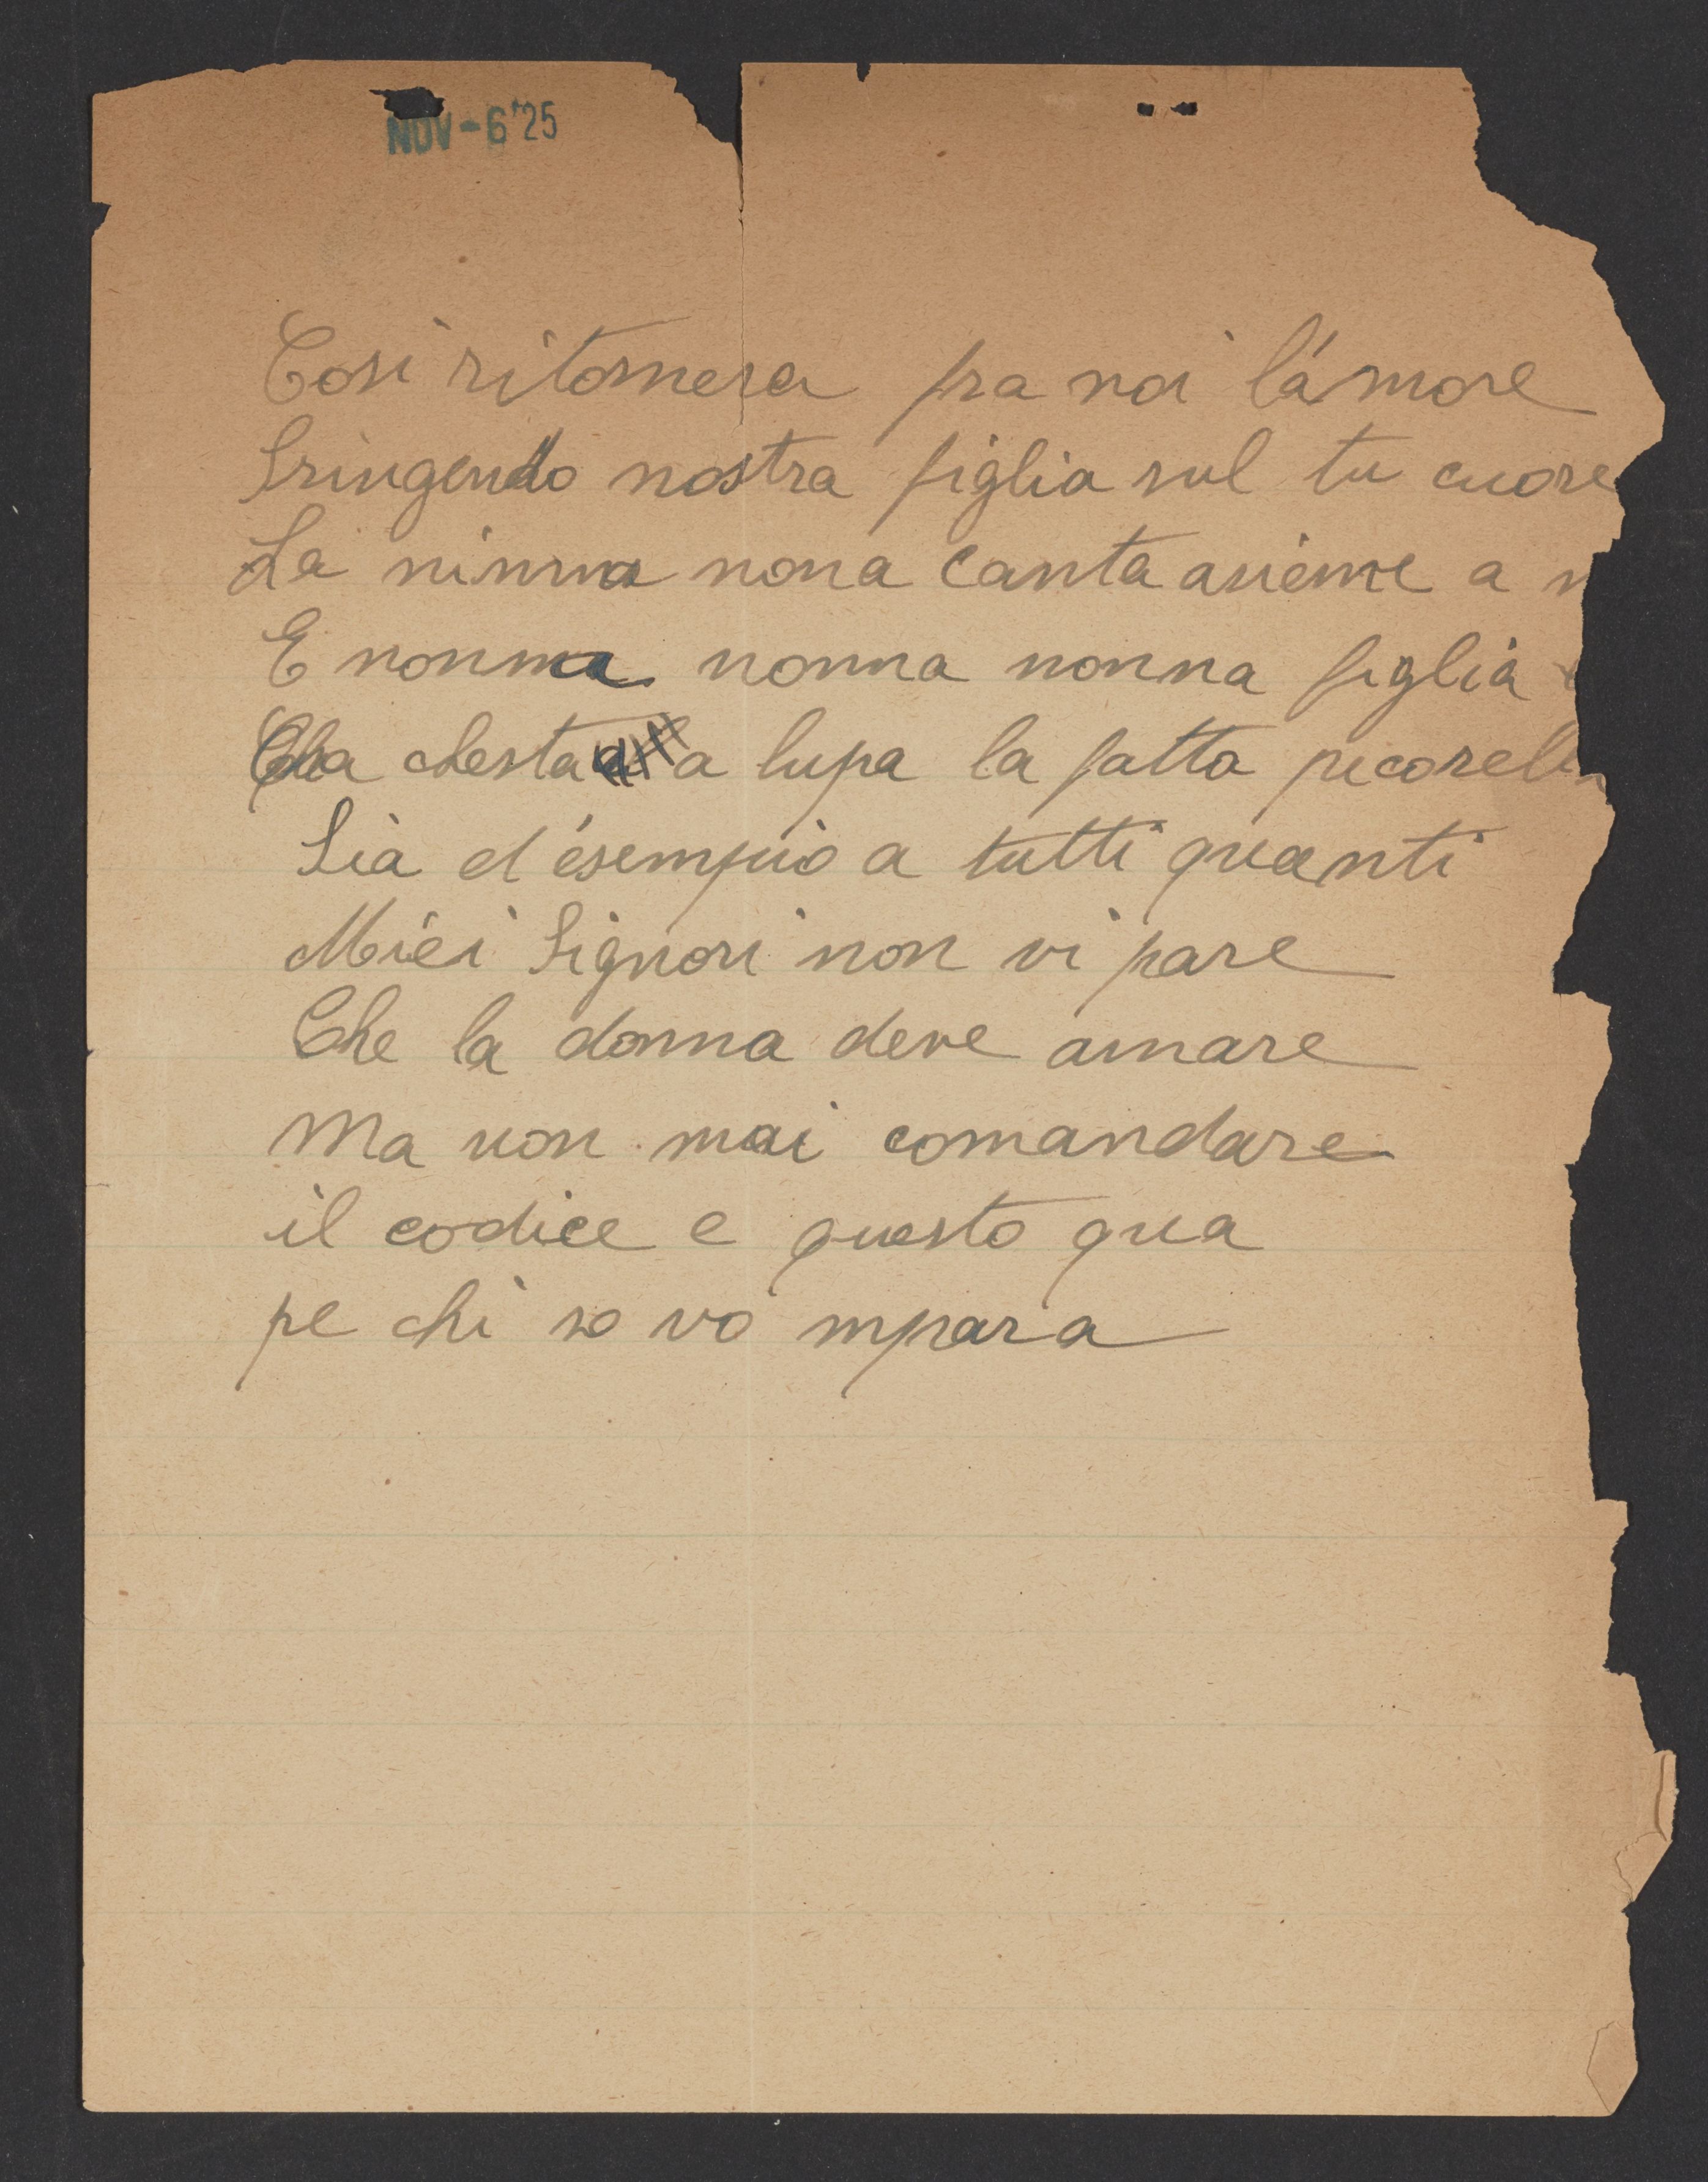 NOV-6'25
Cosi ritornera fra noi l'amore
Sringendo nostra figlia sul tu cuore
La ninna nona canta asieme a
E nonna nonna nonna figlia
Cha chesta a lupa la fatta pecorell
Sia d'esempio a tutti quanti
Miei Signori non vi pare
Che la donna deve amare
Ma non mai comandare
il codice e questo qua
pe chi so vo mpara